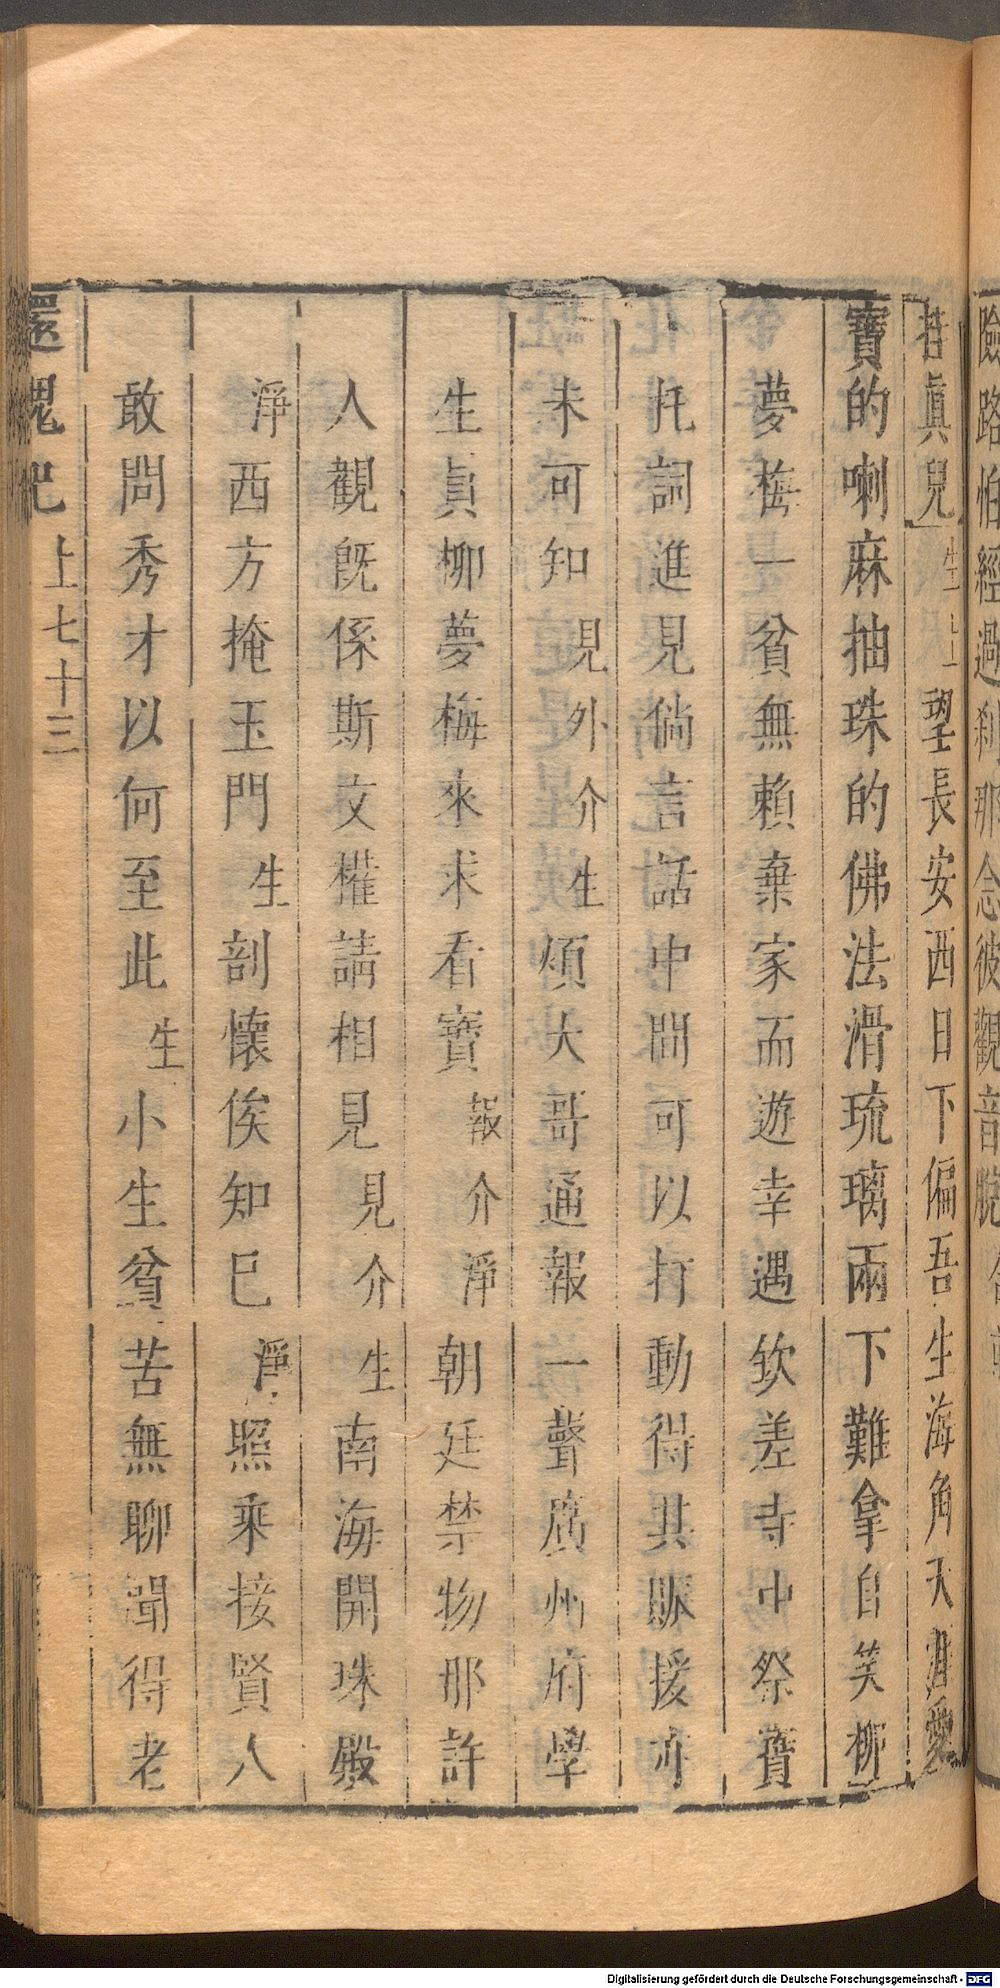 險路怕經過刹那念彼觀音脫
若眞兒生上望長安西日下偏吾生海角天涯愛
寶的喇麻抽珠的佛法滑琉璃兩下難拿自笑柳
夢梅一貧無賴棄家而遊幸遇欽差寺中祭寶
托詞進見倘言話中間可以打動得其賑援亦
未可知見外介生煩大哥通報一聲廣州府學
生員柳夢梅來求看寶報介淨朝廷禁物那許
人觀旣係斯文權請相見見介生南海開珠殿
淨西方掩玉門生剖懷俟知己淨照乘接賢人
敢問秀才以何至此生小生貧苦無聊聞得老
還魂記 上七十三
Digitalisierung gefördert durch die Deutsche Forschungsgemeinschaft - DFG